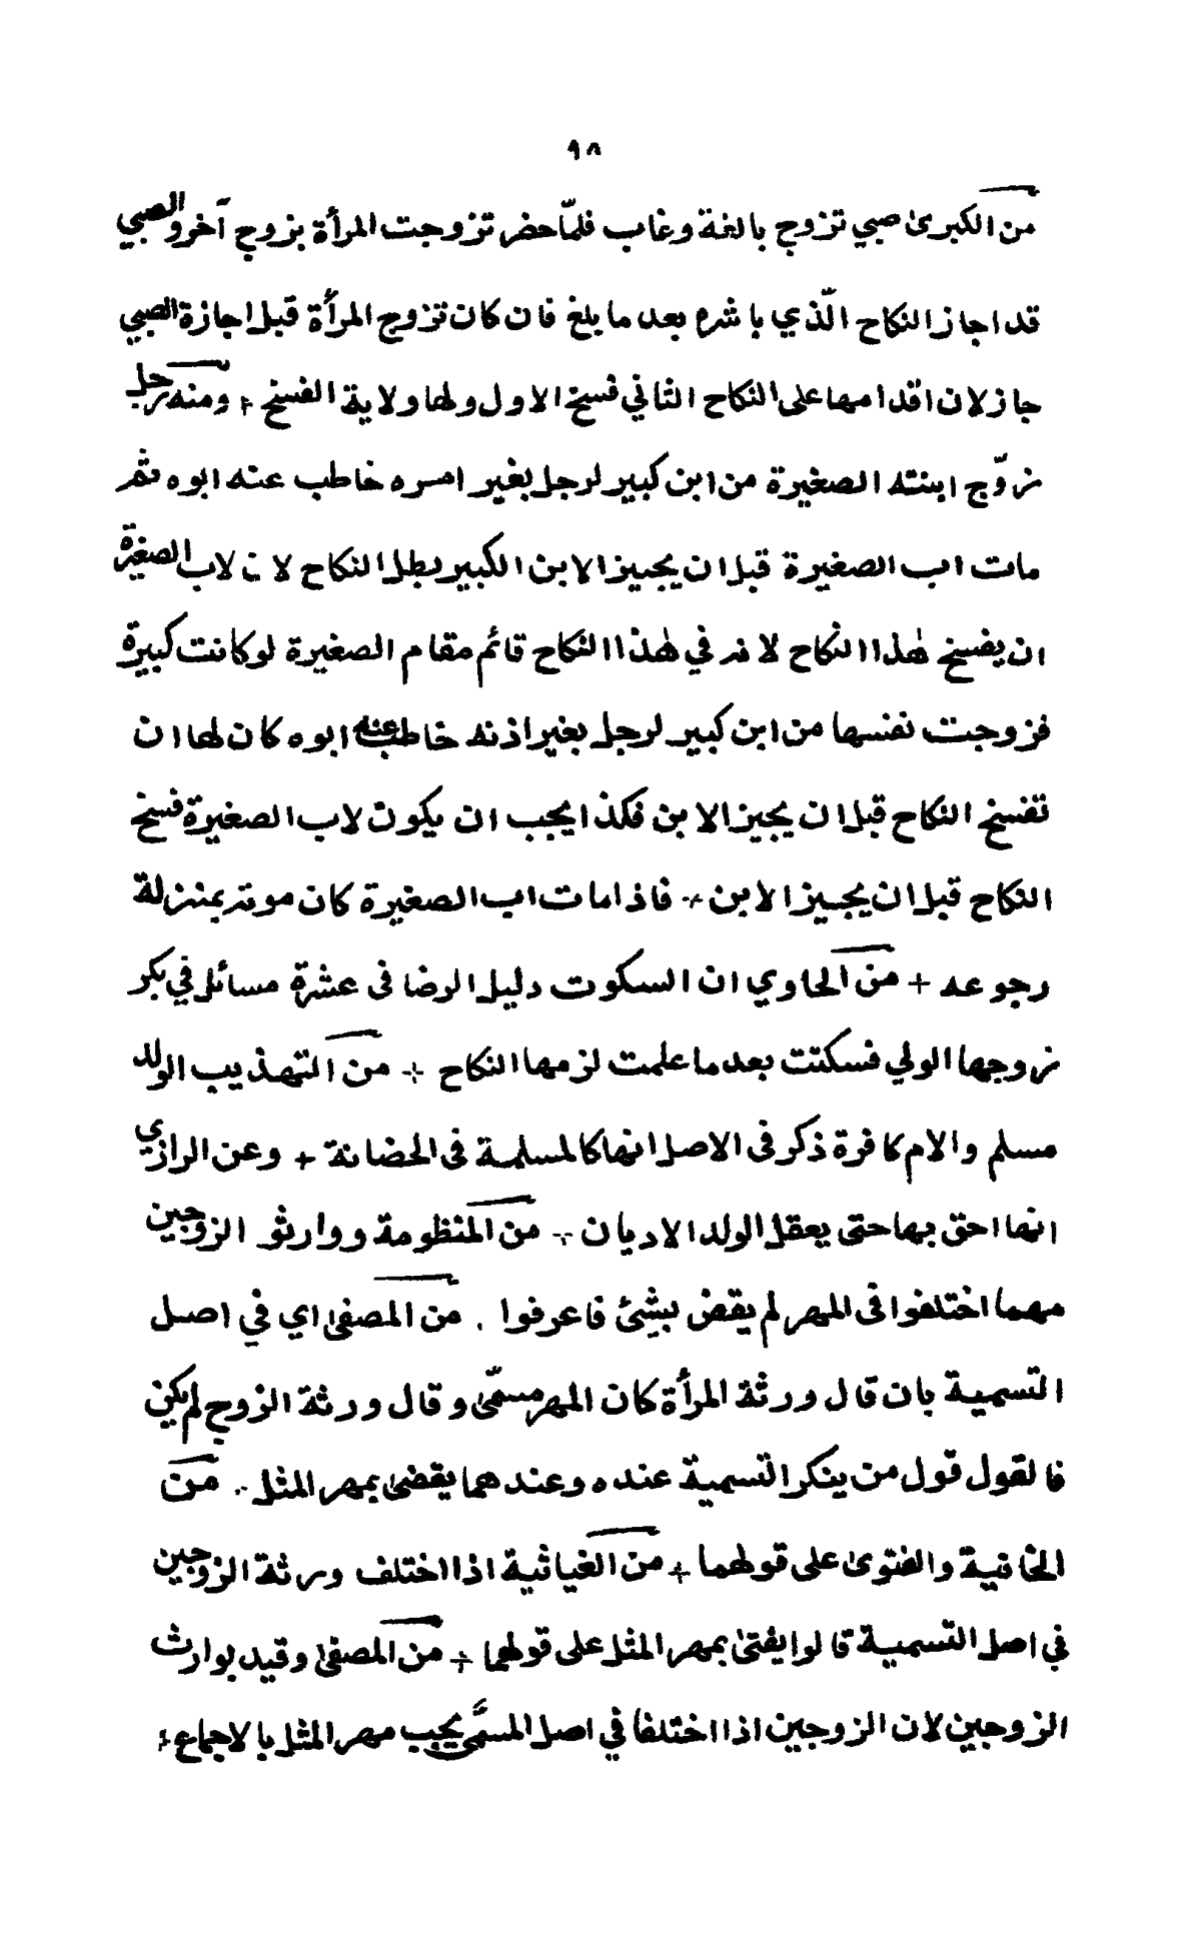 ٩٨
من الكبرىٰ صبي تزوج بالغة وغاب فلمّا حضر تزوجت المرأة بزوج آخر والصبي
قد اجاز النكاح الّذي باشره بعد ما بلغ فان كان تزوج المرأة قبل اجازة الصبي
جاز لان اقدامها على النكاح الثاني فسخ الاول ولها ولاية الفسخ + ومنه رجل
زوّج ابنته الصغيرة من ابن كبير لرجل بغير امره خاطب عنه ابوه ثم
مات اب الصغيرة قبل ان يجيز الابن الكبير بطل النكاح لان لاب الصغيرة
ان يفسخ هٰذا النكاح لانه في هٰذا النكاح قائم مقام الصغيرة لو كانت كبيرة
فزوجت نفسها من ابن كبير لرجل بغير اذنه خاطب عنه ابوه كان لها ان
تفسخ النكاح قبل ان يجيز الابن فكذا يجب ان يكون لاب الصغيرة فسخ
النكاح قبل ان يجيز الابن ؞ فاذا مات اب الصغيرة كان موته بمنزلة
رجوعه + من الحاوي ان السكوت دليل الرضا فى عشرة مسائل في بكر
زوجها الولي فسكتت بعد ما علمت لزمها النكاح + من التهذيب الولد
مسلم والام كافرة ذكر فى الاصل انها كالمسلمة فى الحضانة + وعن الرازي
انها احق بها حتى يعقل الولد الاديان ؞ من المنظومة ووارثو الزوجين
مهما اختلفوا فى المهر لم يقض بشئ فاعرفوا . من المصفىٰ اي في اصل
التسمية بان قال ورثة المرأة كان المهر مسمّىٰ وقال ورثة الزوج لم يكن
فالقول قول من ينكر التسمية عنده وعندهما يقضىٰ بمهر المثل ؞ من
الخانية والفتوىٰ على قولهما + من الغياثية اذا اختلف ورثة الزوجين
في اصل التسمية قالوا يفتىٰ بمهر المثل على قولهما + من المصفىٰ وقيد بوارث
الزوجين لان الزوجين اذا اختلفا في اصل المسمَّى يجب مهر المثل بالاجماع ؞